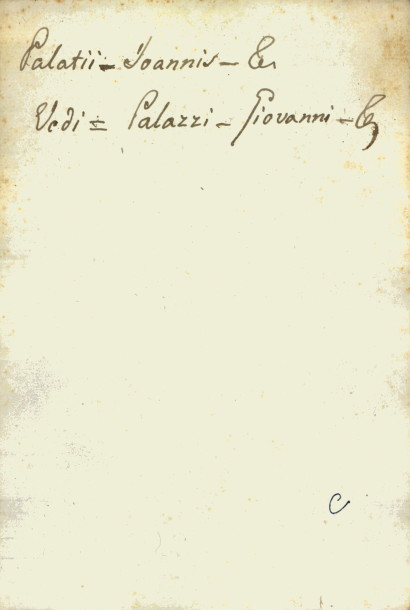 Palatii - Joannis - &.
Vedi = Palazzi - Giovanni - &
C